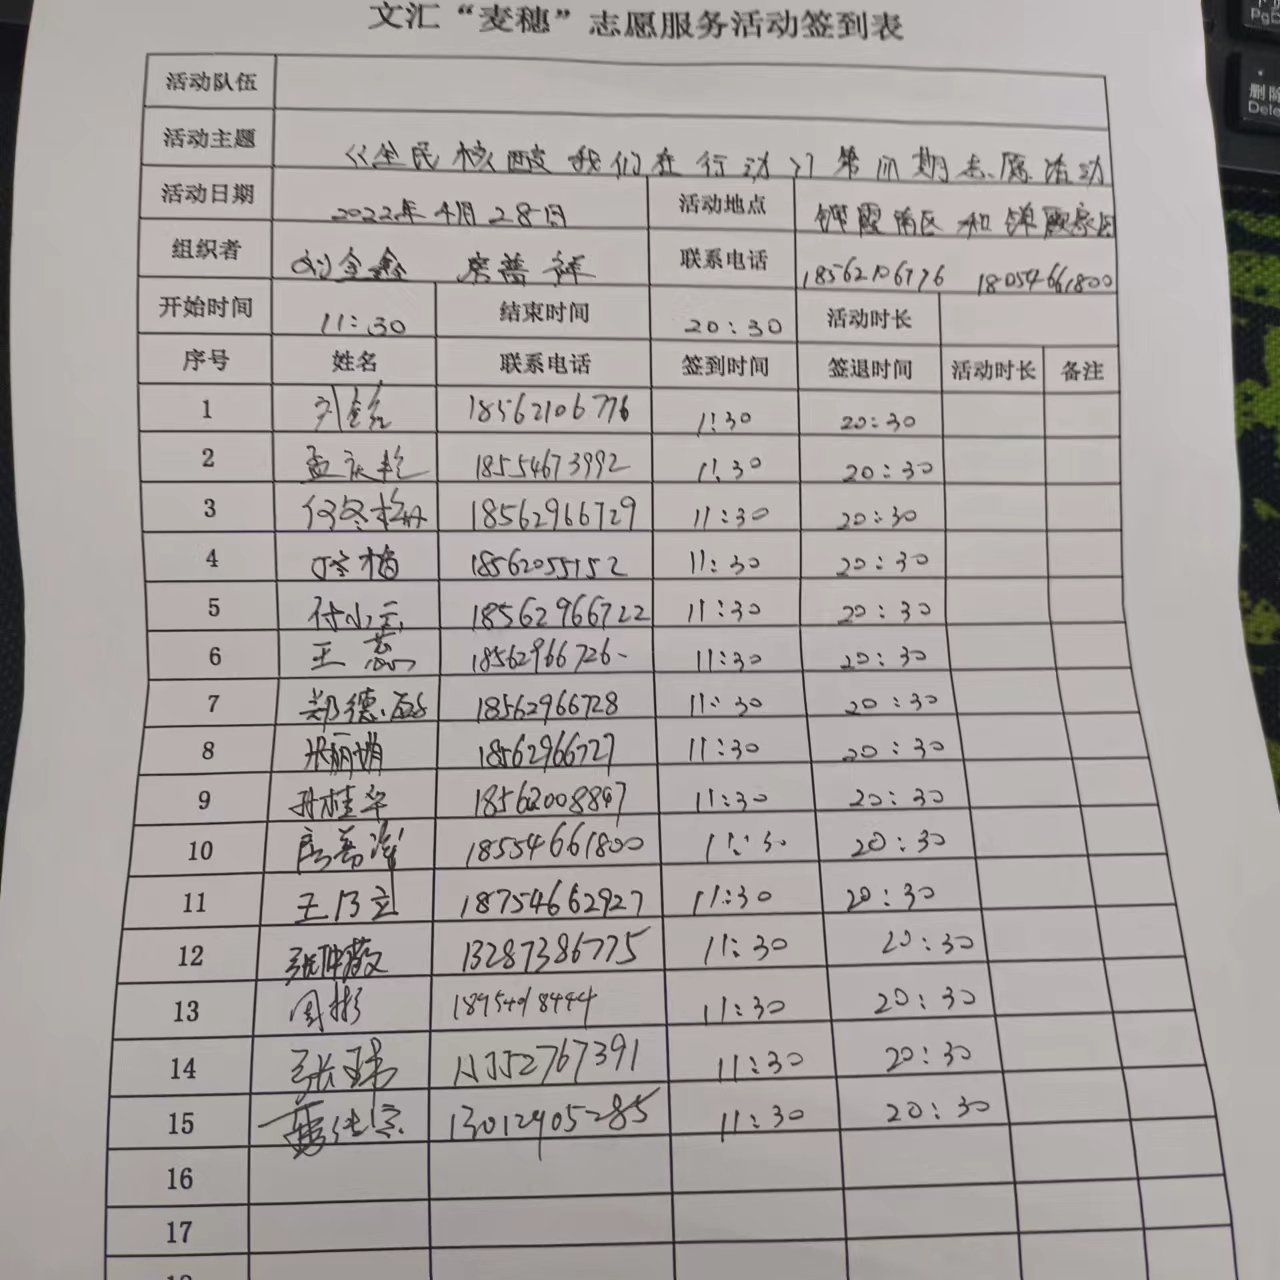 文汇“麦穗”志愿服务活动签到表
活动队伍
活动主题 《全民核酸 我们在行动》 第 期志愿活动
活动日期 2022年4月28日 活动地点 锦霞南区 和 锦霞家园
组织者 刘金鑫 房普祥 联系电话 18562106776 18054661800
开始时间 11:30 结束时间 20:30 活动时长
序号 姓名 联系电话 签到时间 签退时间 活动时长 备注
1 18562106776 11:30 20:30
2 孟庆乾 18554673992 11:30 20:30
3 18562966729 11:30 20:30
4 18562055152 11:30 20:30
5 付小云 18562966722 11:30 20:30
6 王蕊 18562966726 11:30 20:30
7 郑德 18562966728 11:30 20:30
8 张丽娟 18562966727 11:30 20:30
9 孙桂华 18562008847 11:30 20:30
10 18554661800 11:30 20:30
11 王乃立 18754662927 11:30 20:30
12 13287386775 11:30 20:30
13 周彬 11:30 20:30
14 张玮 11:30 20:30
15 13012905285 11:30 20:30
16
17